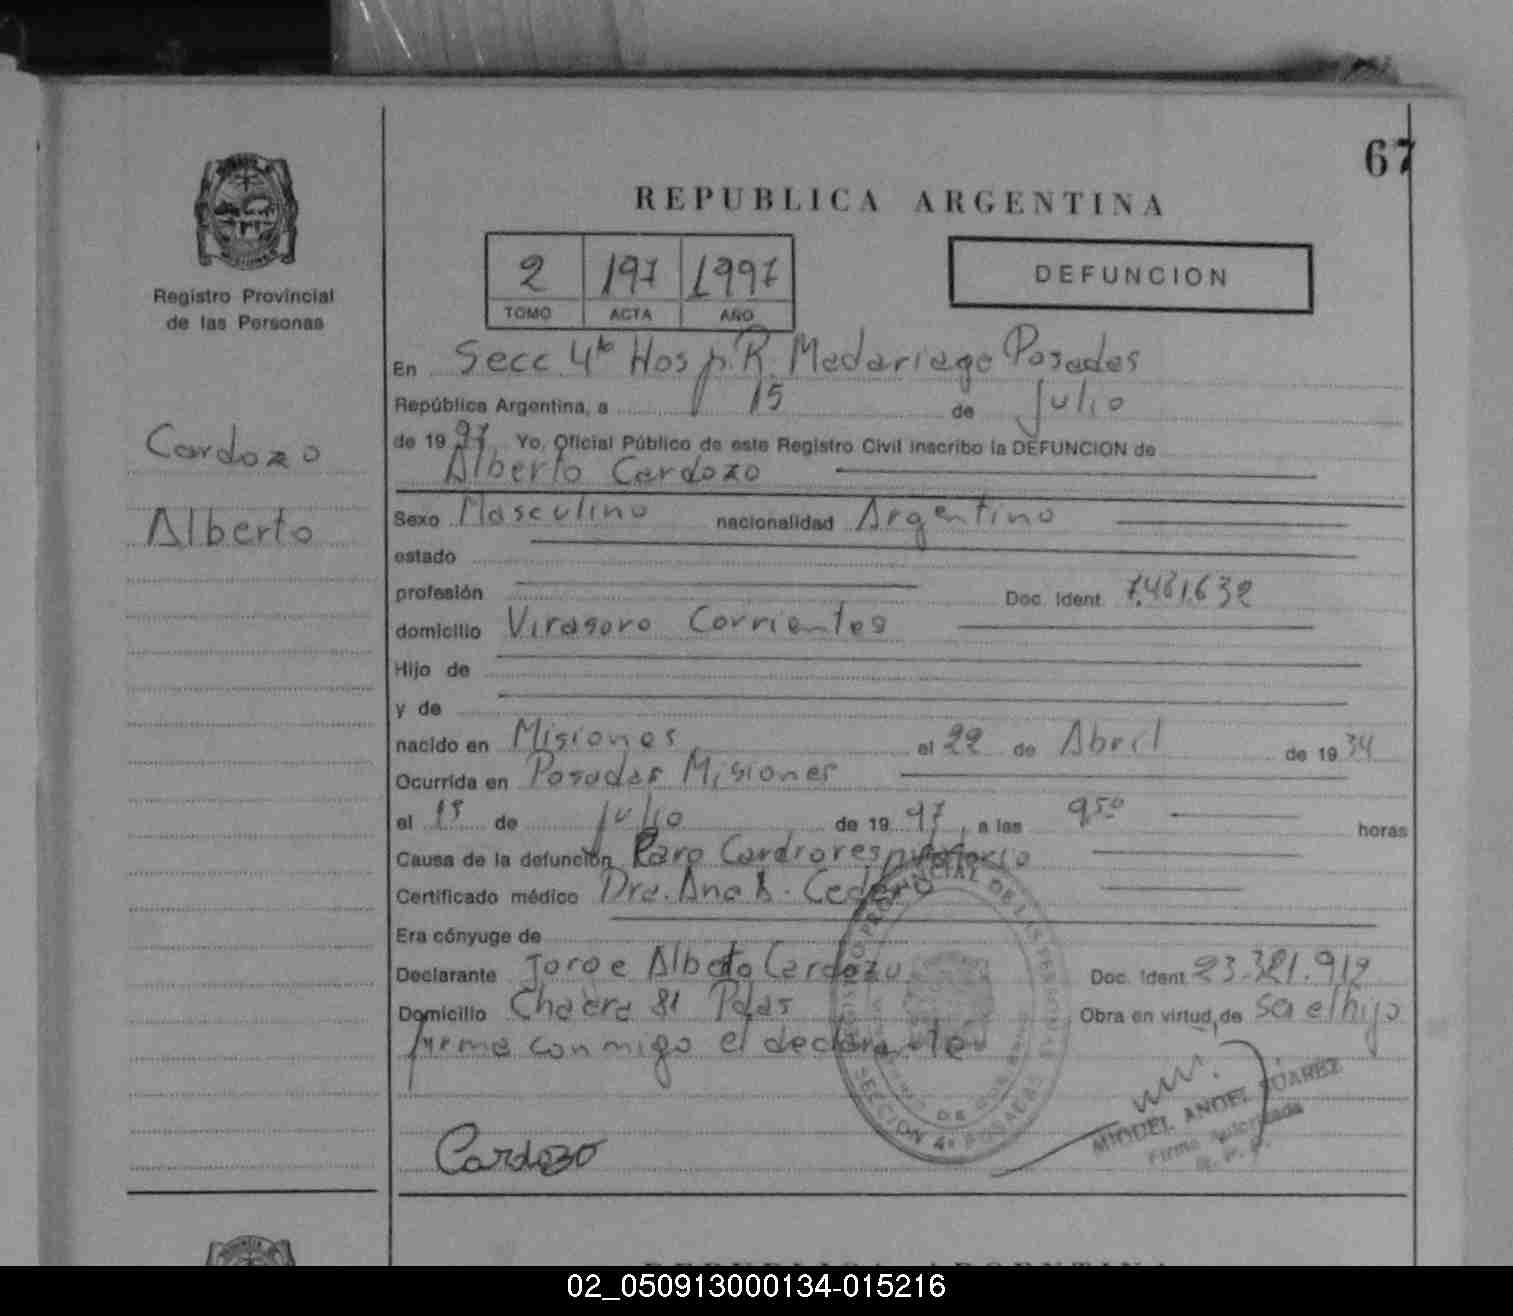 67
REPUBLICA ARGENTINA
2 197 1997
TOMO ACTA AÑO
DEFUNCION
Registro Provincial
de las Personas
Cardozo
Alberto
En Secc 4ta Hosp. R. Madariaga Posadas
República Argentina, a 15 de Julio
de 1997 Yo, Oficial Público de este Registro Civil inscribo la DEFUNCION de
Alberto Cardozo
Sexo Masculino nacionalidad Argentino
estado
profesión Doc. Ident. 7.481.632
domicilio Virasoro Corrientes
Hijo de
y de
nacido en Misiones el 22 de Abril de 1934
Ocurrida en Posadas Misiones
el 15 de Julio de 1997, a las 9,50 horas
Causa de la defunción Paro Cardiorespiratorio
Certificado médico Dra. Ana
Era cónyuge de
Declarante Jorge Alberto Cardozo Doc. Ident. 23.321.912
Domicilio Chacra 81 Pdas Obra en virtud de ser el hijo
firma conmigo el declarante
REGISTRO PROVINCIAL DE LAS PERSONAS
SECCION 4ª POSADAS
Cardozo
MIGUEL ANGEL SUAREZ
Firma Autorizada
R. P. P.
REPUBLICA ARGENTINA
02_050913000134-015216